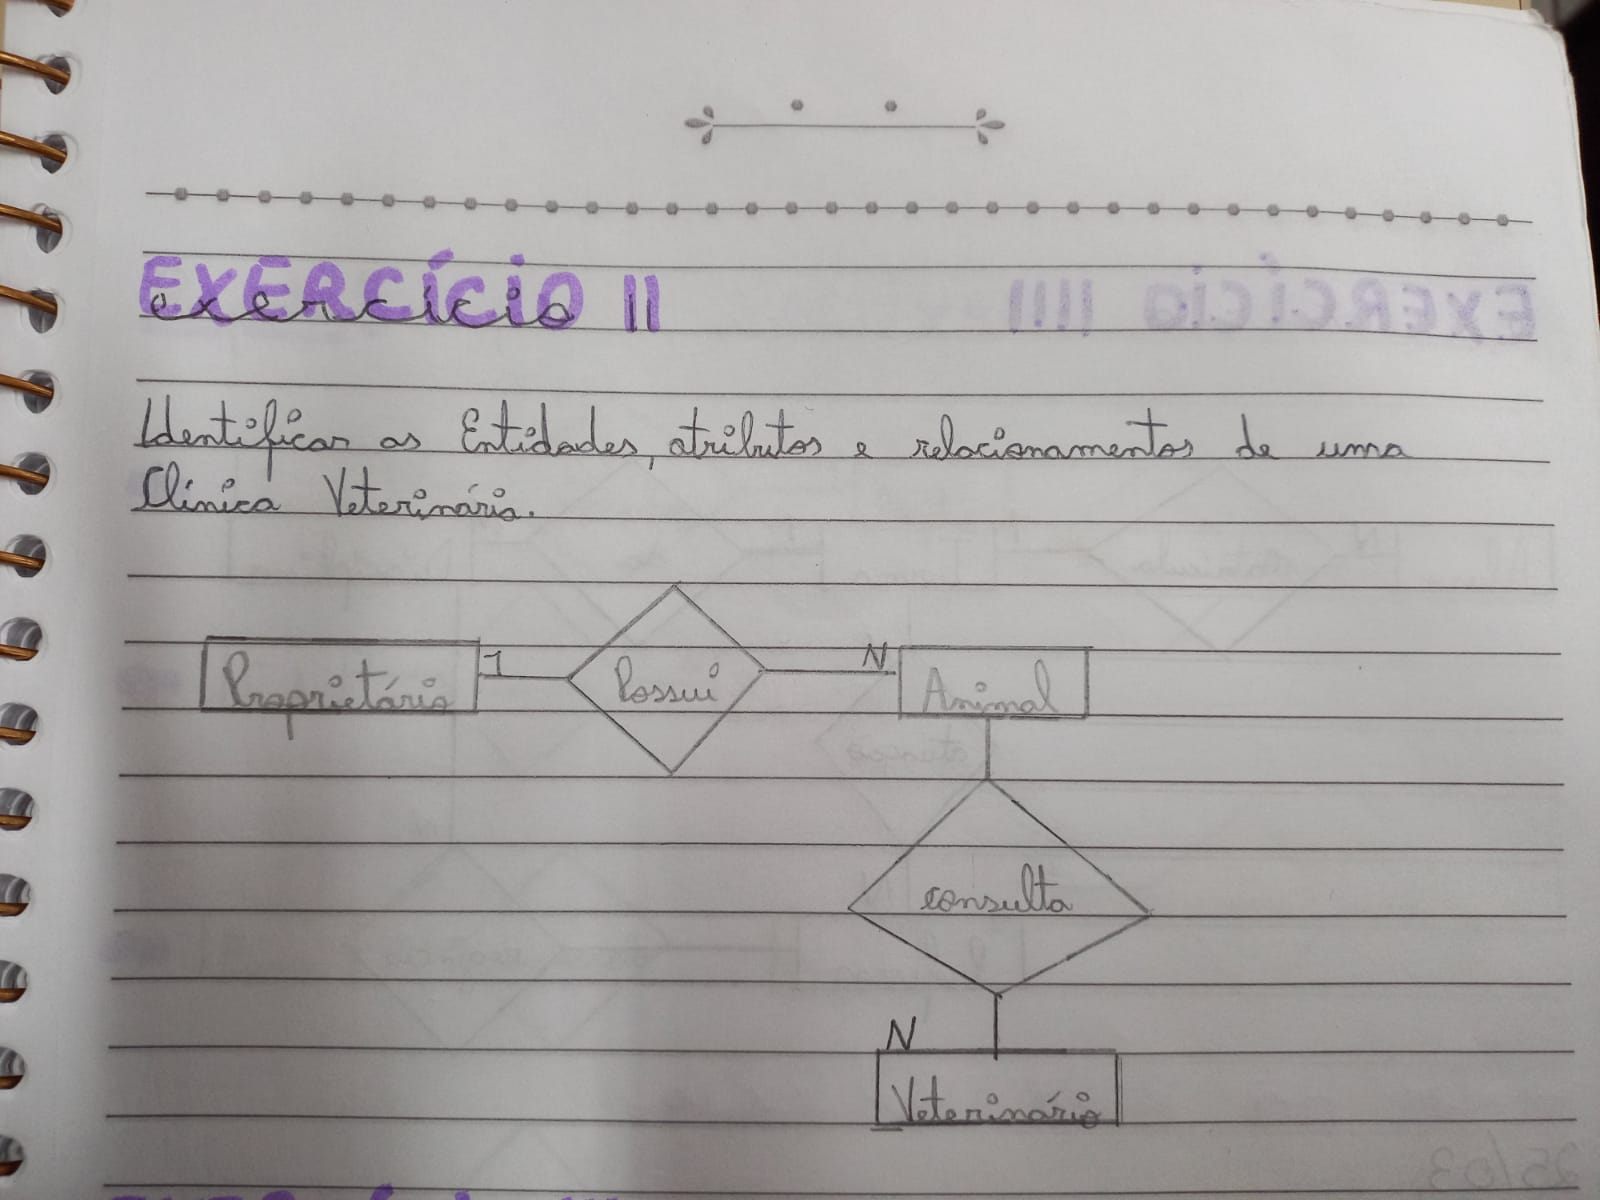 EXERCÍCIO II
exercício
Identificar as Entidades, atributos e relacionamentos de uma
Clínica Veterinária.
Proprietário 1 Possui N Animal
consulta
N
Veterinário